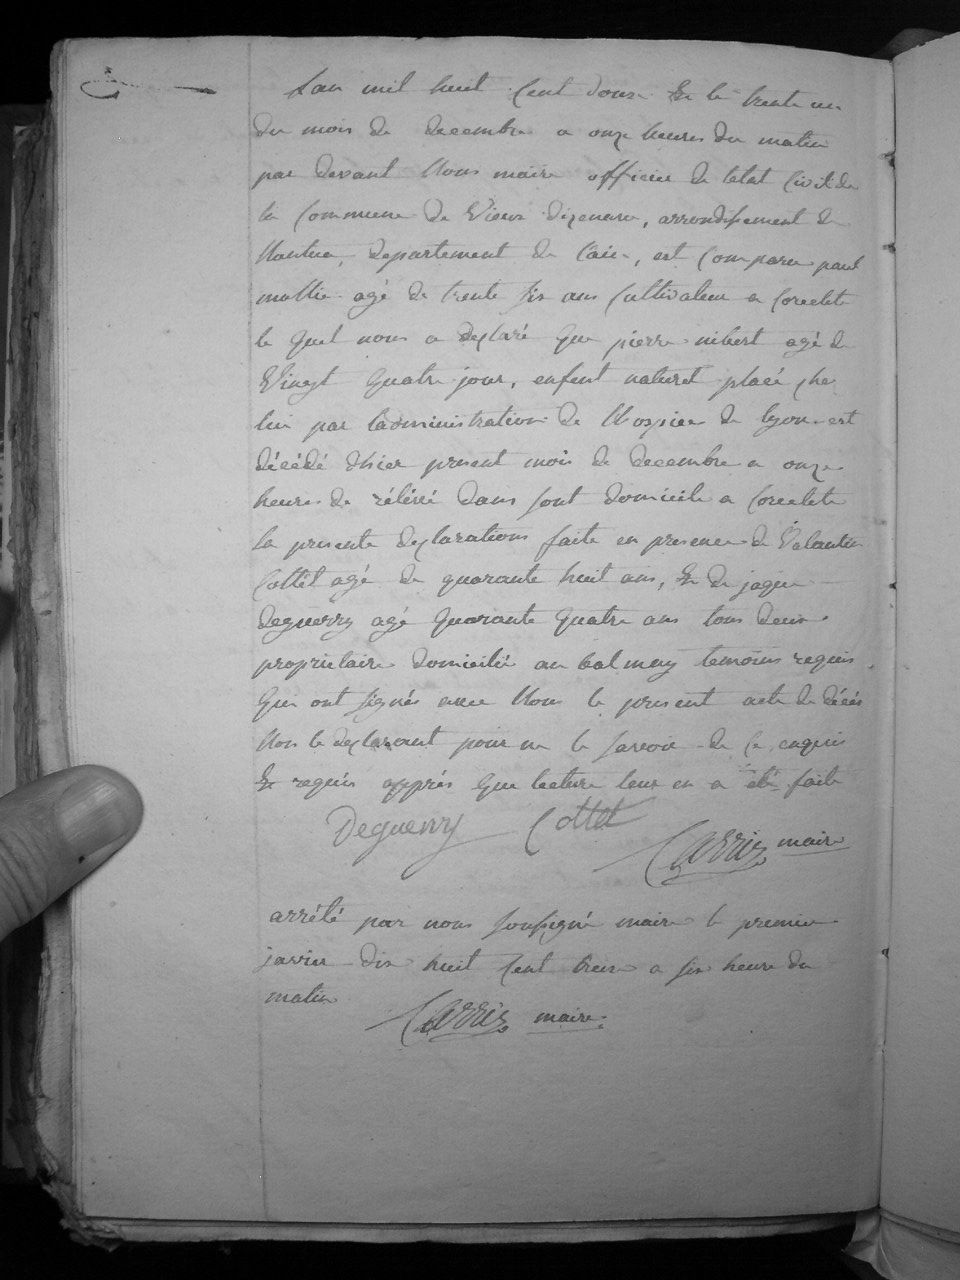 Lan mil huit Cent douze & le trente un
du mois de decembre a onze heures du matin
par devant Nous maire officier de letat Civil de
la Commune de Vieux dizenave, arrondissement de
Nantua, departement de l'ain, est Comparu paul
mollie agé de trente six ans Cultivateur a Corcelete
le quel nous a declaré que pierre nibert agé de
Vingt quatre jour, enfent naturel placé che
lui par ladministration de lhospice de lyon est
décédé dhier present mois de decembre a onze
heures de rélévé dans sont domicile a Corcelete
la presente declarations faite en presence de Valantin
Cottet agé de quarante huit ans, & de jaque
deguerry agé quarante quatre ans tous deux
proprietaire domicilié au balmay temoins requis
que ont signés avec Nous le present acte de décés
Non le declarant pour ne le savoir de ce enquis
& requis apprés que lecture leur en a été faite
Deguerry Cottet
Carrier maire
arrété par nous soussigné maire le premier
janvier dix huit Cent treize a six heure du
matin
Carrier maire